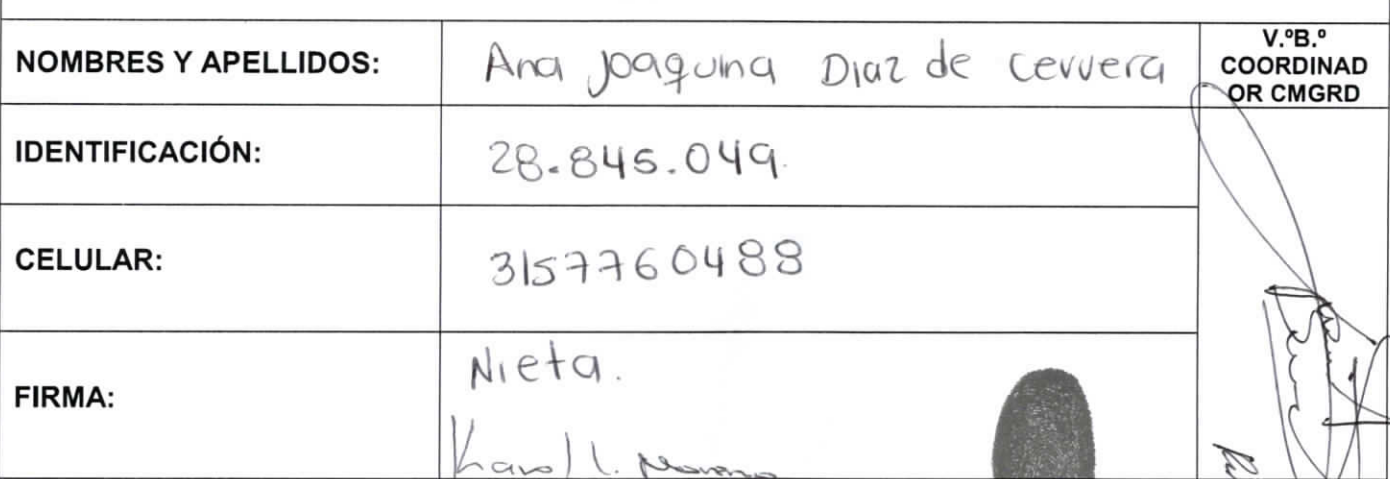 NOMBRES Y APELLIDOS: Ana Joaquina Diaz de Cervera
V.ºB.º
COORDINAD
OR CMGRD
IDENTIFICACIÓN: 28.845.049.
CELULAR: 3157760488
FIRMA: Nieta.
Karol L. Moreno